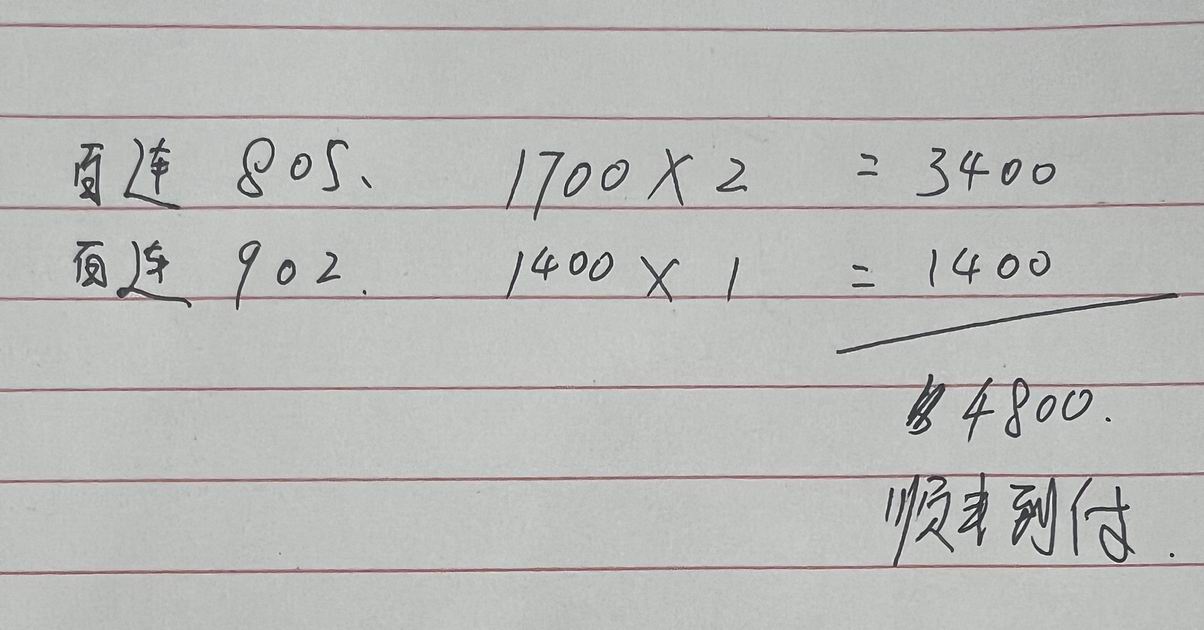 百连 805、 1700 X 2 = 3400
百连 902. 1400 X 1 = 1400
4800.
顺丰到付.